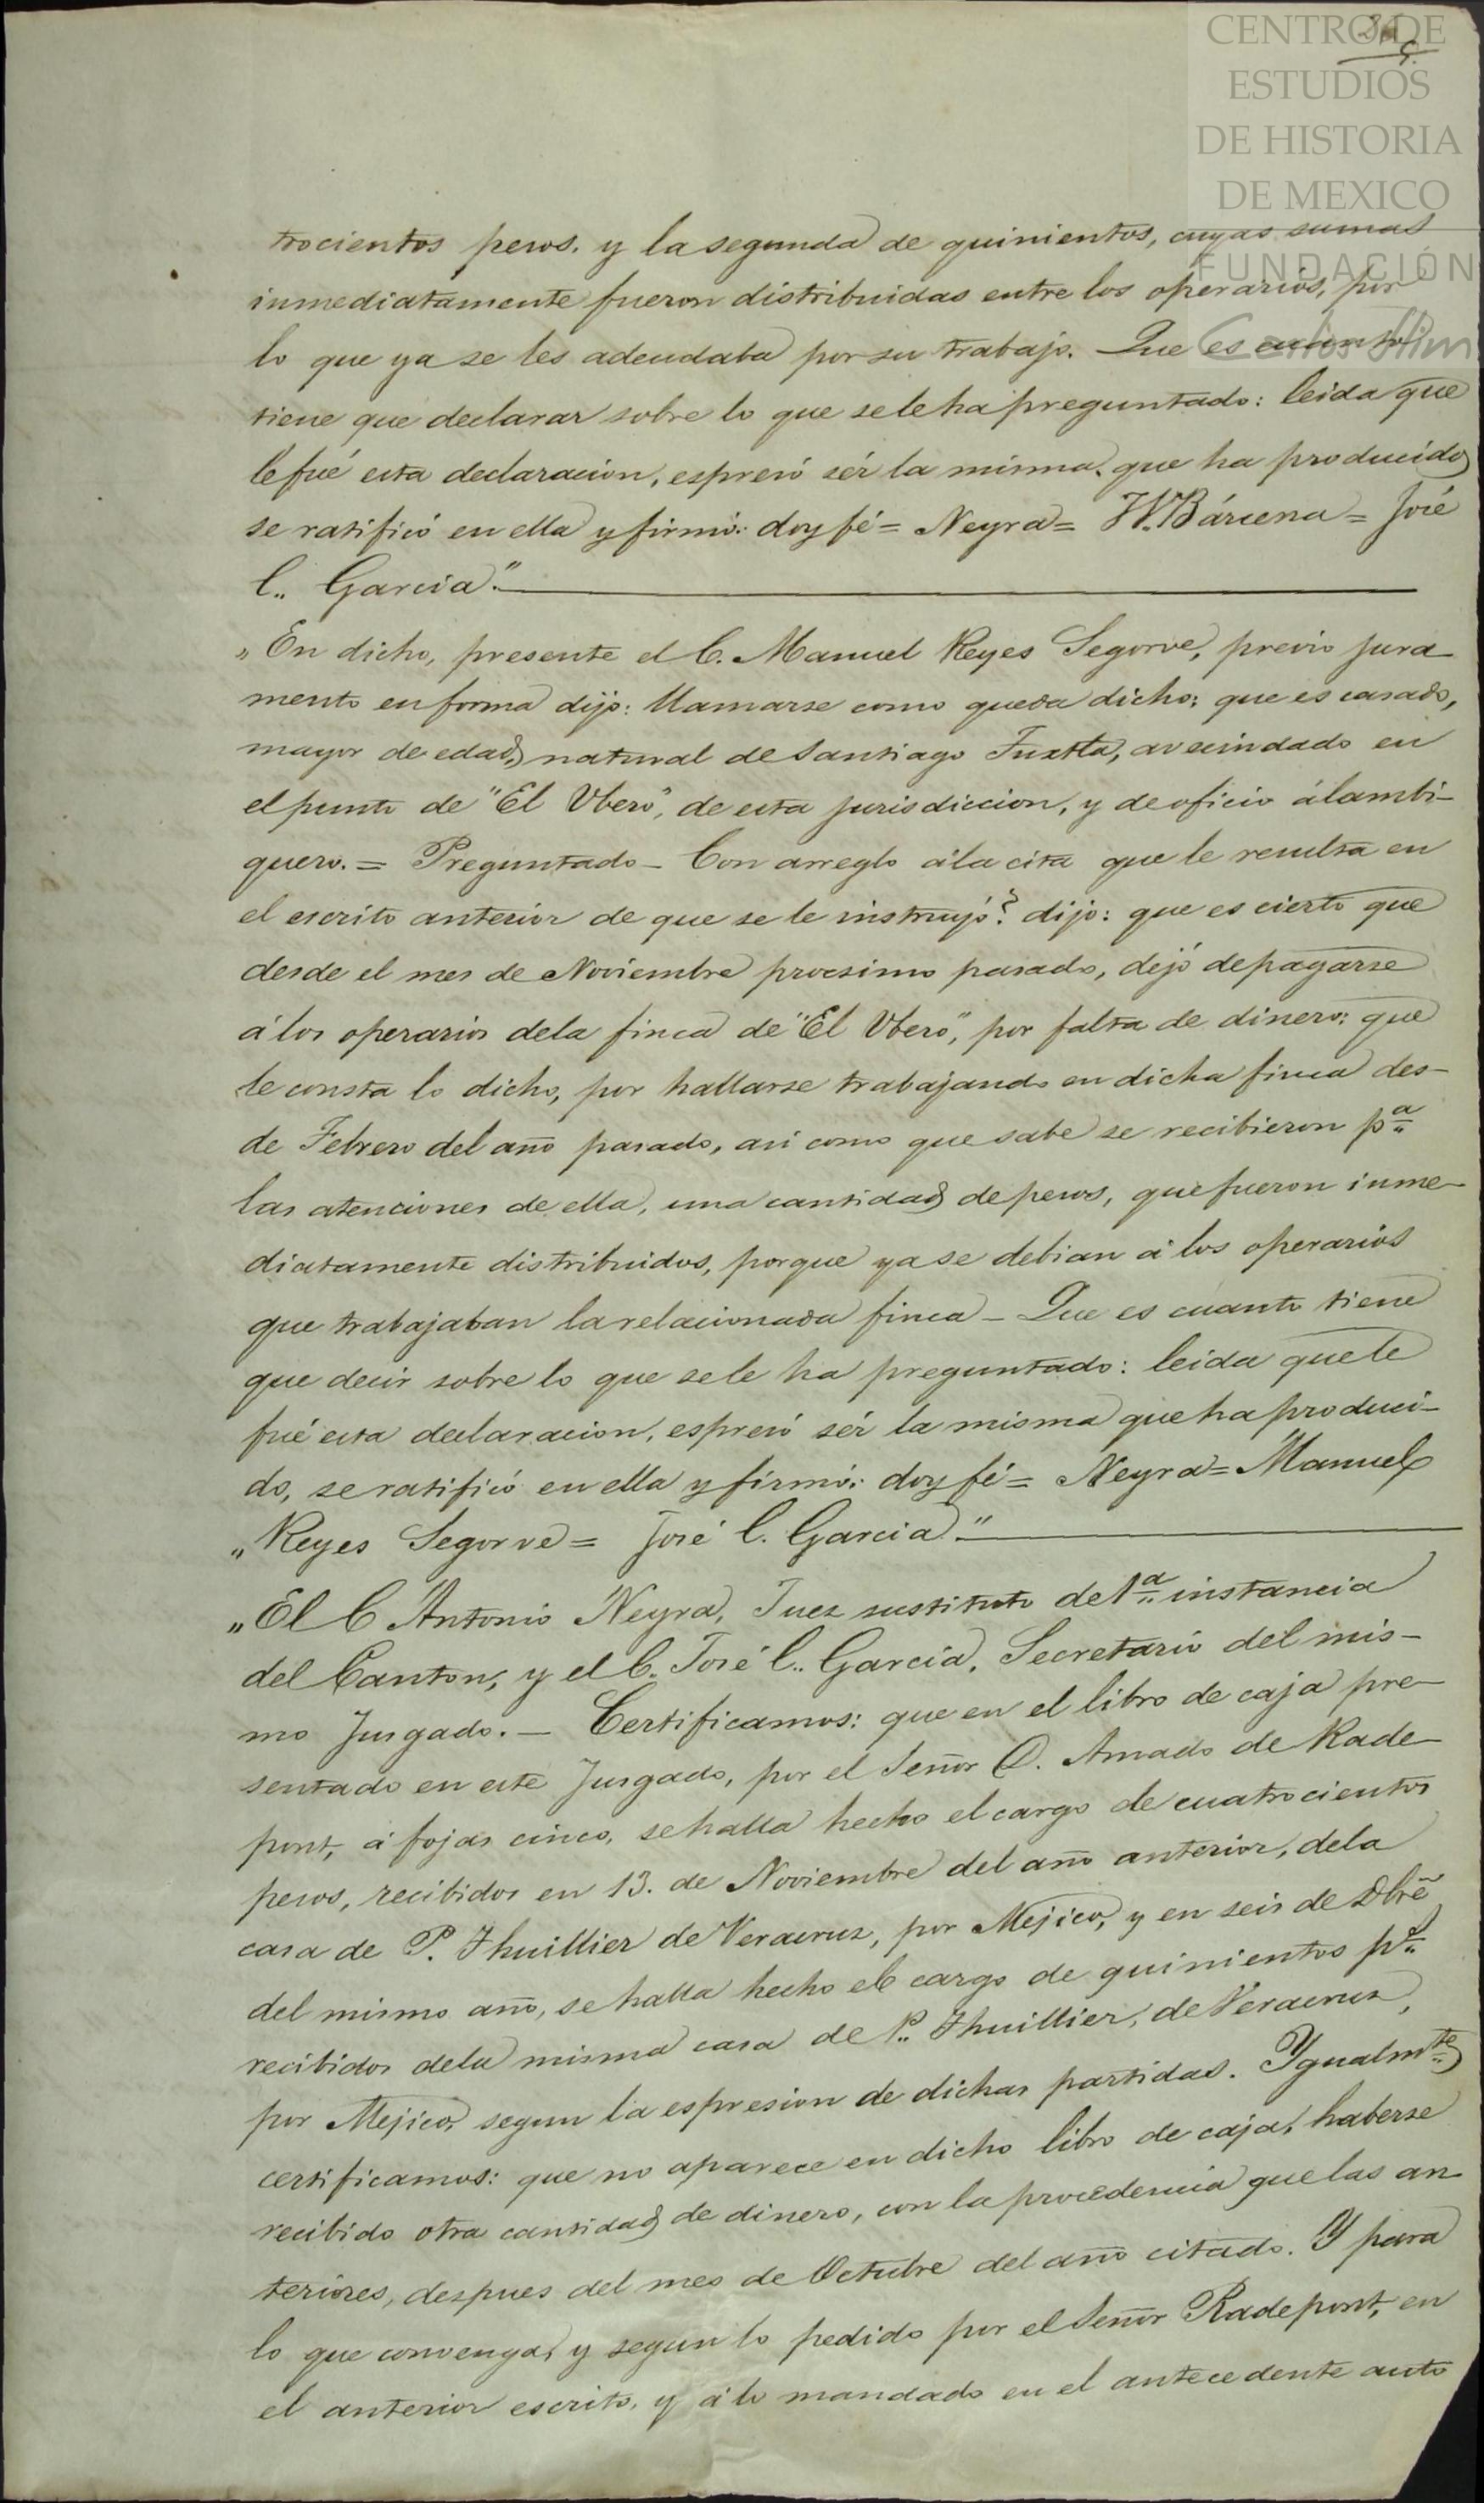 CENTRO DE
ESTUDIOS
DE HISTORIA
DE MEXICO
FUNDACIÓN
Carlos Slim
trocientos pesos, y la segunda de quinientos, cuyas sumas
inmediatamente fueron distribuidas entre los operarios, por
lo que ya se les adeudaba por su trabajo. Que es cuanto
tiene que declarar sobre lo que se le ha preguntado: leida que
le fué esta declaracion, espresó sér la misma que ha producido
se ratificó en ella y firmó: doy fé = Neyra = W. Bárcena = José
C.. Garcia."
„En dicho, presente el C. Manuel Reyes Segorve, previo jura-
mento en forma dijo: llamarse como queda dicho; que es casado,
mayor de edad, natural de Santiago Tuxtla, avecindado en
el punto de "El Ubero", de esta jurisdiccion, y de oficio álambi-
quero. = Preguntado – Con arreglo á la cita que le resulta en
el escrito anterior de que se le instruyó? dijo: que es cierto que
desde el mes de Noviembre procsimo pasado, dejó de pagarse
á los operarios de la finca de "El Ubero", por falta de dinero: que
le consta lo dicho, por hallarse trabajando en dicha finca des-
de Febrero del año pasado, asi como que sabe se recibieron pª
las atenciones de ella, una cantidad de pesos, que fueron inme-
diatamente distribuidos, porque ya se debian á los operarios
que trabajaban la relacionada finca – Que es cuanto tiene
que decir sobre lo que se le ha preguntado: leida que le
fué esta declaracion, espresó sér la misma que ha produci-
do, se ratificó en ella y firmó: doy fé = Neyra = Manuel
„Reyes Segorve = José C. Garcia."
„El C Antonio Neyra, Juez sustituto de 1ª instancia
del Canton, y el C. José C.. Garcia, Secretario del mis-
mo Jusgado. – Certificamos: que en el libro de caja pre-
sentado en este Jusgado, por el Señor D. Amado de Rade-
pont, á fojas cinco, se halla hecho el cargo de cuatrocientos
pesos, recibidos en 13. de Noviembre del año anterior, de la
casa de P. Thuillier de Veracruz, por Mejico, y en seis de Dbrē
del mismo año, se halla hecho el cargo de quinientos pˢ
recibidos de la misma casa de P.. Thuillier, de Veracruz,
por Mejico, segun la espresion de dichas partidas. Ygualmᵗᵉ
certificamos: que no aparece en dicho libro de caja, haberse
recibido otra cantidad de dinero, con la procedencia que las an-
teriores, despues del mes de Octubre del año citado. Y para
lo que convenga, y segun lo pedido por el Señor Radepont, en
el anterior escrito, y á lo mandado en el antecedente auto